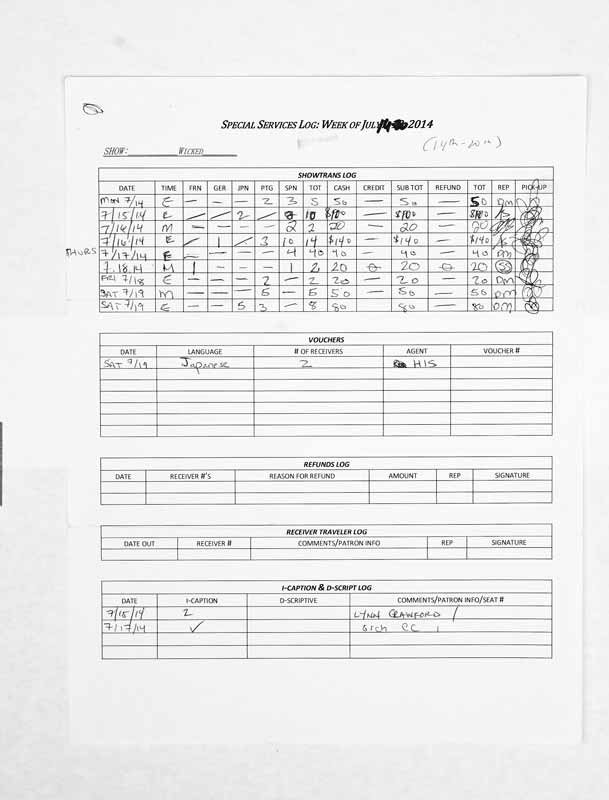 SPECIAL SERVICES LOG: WEEK OF JULY 2014
(14th-20th)
SHOW: WICKED
SHOWTRANS LOG
DATE TIME FRN GER JPN PTG SPN TOT CASH CREDIT SUB TOT REFUND TOT REP PICK-UP
MON 7/14 E — — — 2 3 5 50 — 50 — 50 pm
7/15/14 E / / 2 / 10 $100 — $100 — $100
7/16/14 M — — — — 2 2 20 — 20 — 20
7/16/14 E / 1 / 3 10 14 $140 — $140 — $140
THURS 7/17/14 E — — — — 4 40 40 — 40 — 40 pm
7.18.14 M 1 — — — 1 2 20 0 20 0 20
FRI 7/18 E — — — 2 — 2 20 — 20 — 20 pm
SAT 7/19 M — — — 5 — 5 50 — 50 — 50 pm
SAT 7/19 E — — 5 3 — 8 80 — 80 — 80 pm
VOUCHERS
DATE LANGUAGE # OF RECEIVERS AGENT VOUCHER #
SAT 7/19 Japanese 2 HIS
REFUNDS LOG
DATE RECEIVER #'S REASON FOR REFUND AMOUNT REP SIGNATURE
RECEIVER TRAVELER LOG
DATE OUT RECEIVER # COMMENTS/PATRON INFO REP SIGNATURE
I-CAPTION & D-SCRIPT LOG
DATE I-CAPTION D-SCRIPTIVE COMMENTS/PATRON INFO/SEAT #
7/15/14 2 LYNN CRAWFORD /
7/17/14 ✓ CC 1